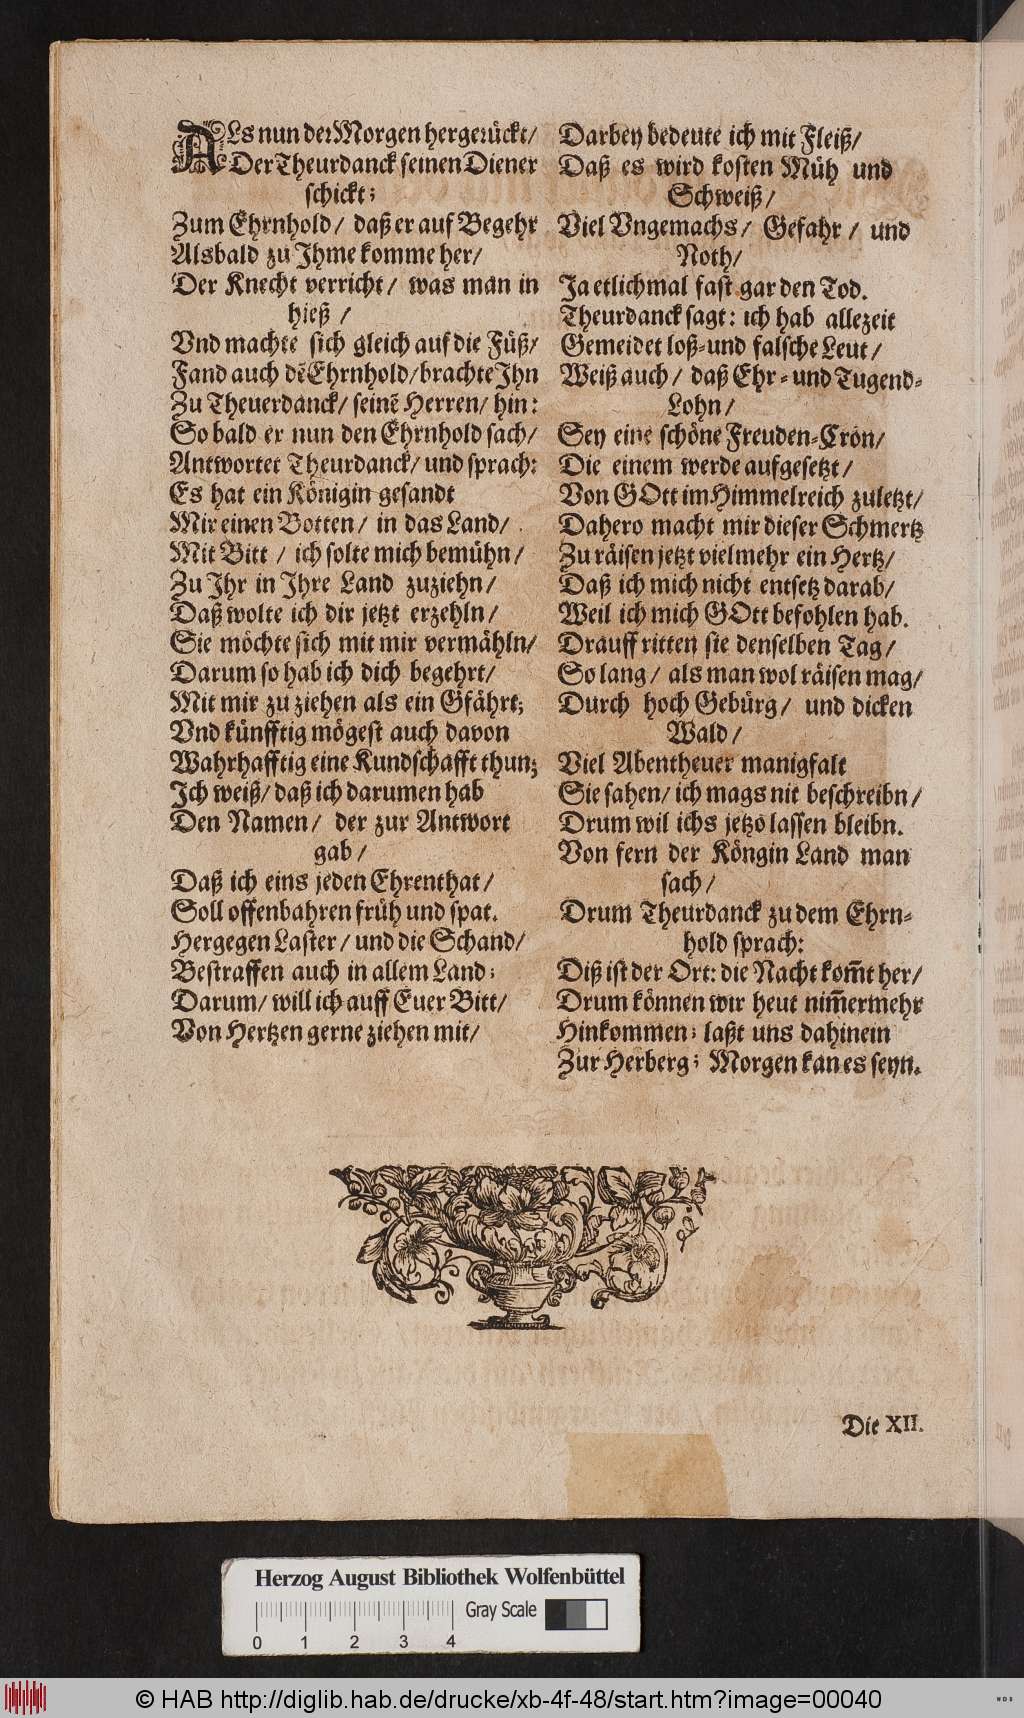 ALs nun der Morgen hergerückt/
Der Theurdanck seinen Diener
schickt;
Zum Ehrnhold/ daß er auf Begehr
Alsbald zu Ihme komme her/
Der Knecht verricht/ was man in
hieß /
Vnd machte sich gleich auf die Füß/
Fand auch dē Ehrnhold/ brachte Ihn
Zu Theuerdanck/ seinē Herren/ hin:
So bald er nun den Ehrnhold sach/
Antwortet Theurdanck/ und sprach:
Es hat ein Königin gesandt
Mir einen Botten/ in das Land/
Mit Bitt / ich solte mich bemühn/
Zu Ihr in Ihre Land zuziehn/
Daß wolte ich dir jetzt erzehln/
Sie möchte sich mit mir vermähln/
Darum so hab ich dich begehrt/
Mit mir zu ziehen als ein Gfährt;
Vnd künfftig mögest auch davon
Wahrhafftig eine Kundschafft thun;
Ich weiß/ daß ich darumen hab
Den Namen/ der zur Antwort
gab/
Daß ich eins jeden Ehrenthat/
Soll offenbahren früh und spat.
Hergegen Laster/ und die Schand/
Bestraffen auch in allem Land;
Darum/ will ich auff Euer Bitt/
Von Hertzen gerne ziehen mit/
Darbey bedeute ich mit Fleiß/
Daß es wird kosten Müh und
Schweiß/
Viel Vngemachs/ Gefahr/ und
Noth/
Ja etlichmal fast gar den Tod.
Theurdanck sagt: ich hab allezeit
Gemeidet loß-und falsche Leut/
Weiß auch/ daß Ehr-und Tugend-
Lohn/
Sey eine schöne Freuden-Cron/
Die einem werde aufgesetzt/
Von GOtt im Himmelreich zuletzt/
Dahero macht mir dieser Schmertz
Zu räisen jetzt vielmehr ein Hertz/
Daß ich mich nicht entsetz darab/
Weil ich mich GOtt befohlen hab.
Drauff ritten sie denselben Tag/
So lang/ als man wol räisen mag/
Durch hoch Gebürg/ und dicken
Wald/
Viel Abentheuer manigfalt
Sie sahen/ ich mags nit beschreibn/
Drum wil ichs jetzo lassen bleibn.
Von fern der Köngin Land man
sach/
Drum Theurdanck zu dem Ehrn-
hold sprach:
Diß ist der Ort: die Nacht kom̄t her/
Drum können wir heut nim̄ermehr
Hinkommen; laßt uns dahinein
Zur Herberg; Morgen kan es seyn.
Die XII.
Herzog August Bibliothek Wolfenbüttel
Gray Scale
0 1 2 3 4
© HAB http://diglib.hab.de/drucke/xb-4f-48/start.htm?image=00040